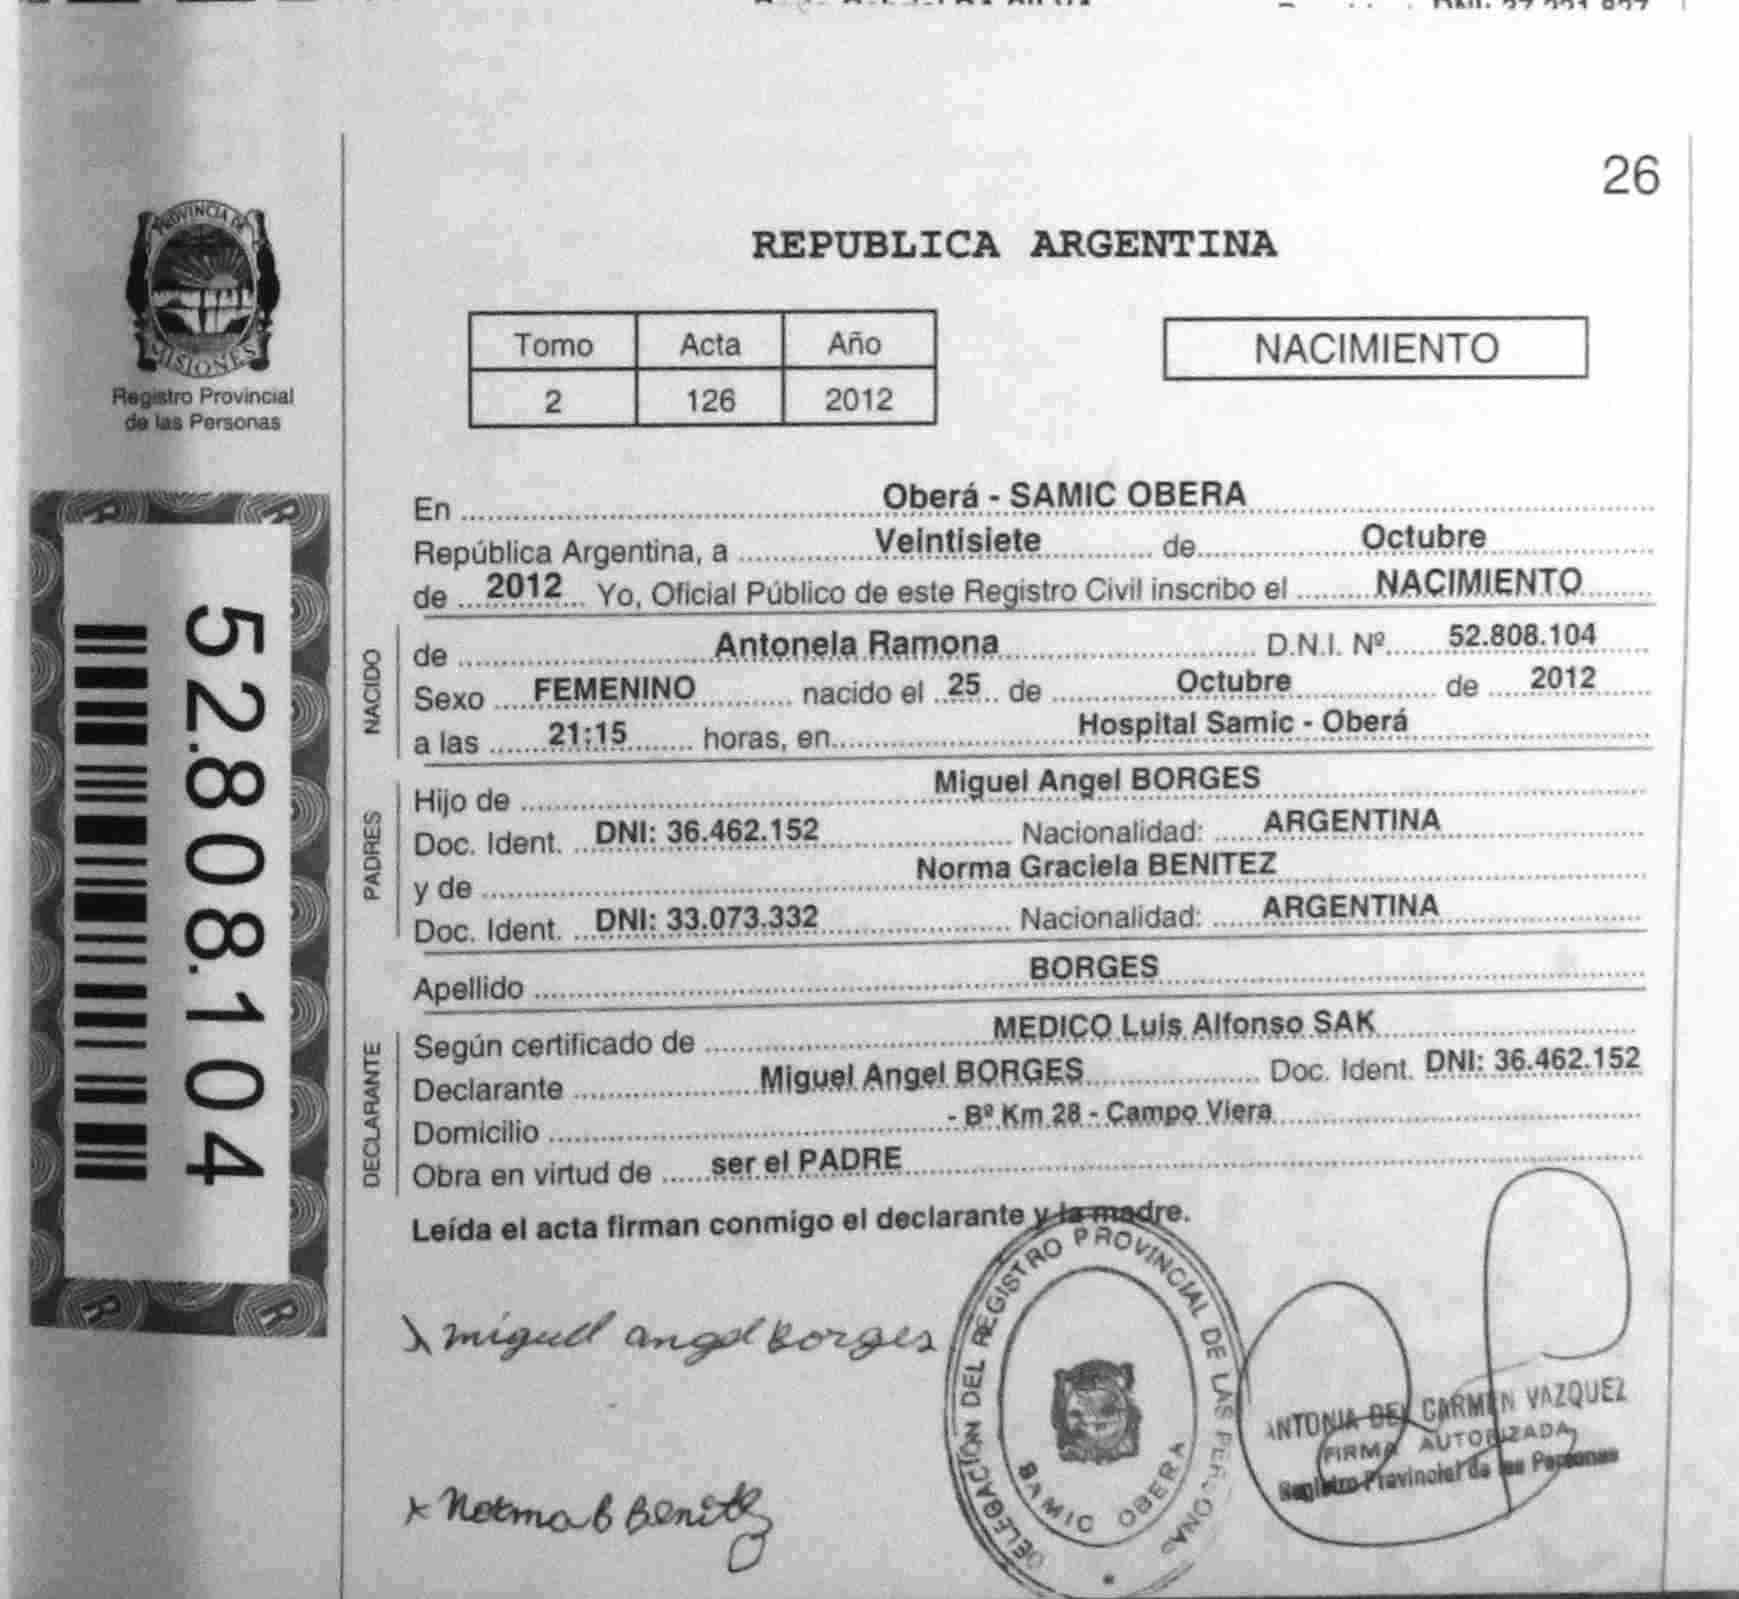 26
PROVINCIA DE
MISIONES
Registro Provincial
de las Personas
REPUBLICA ARGENTINA
Tomo Acta Año
2 126 2012
NACIMIENTO
52.808.104
En Oberá - SAMIC OBERA
República Argentina, a Veintisiete de Octubre
de 2012 Yo, Oficial Público de este Registro Civil inscribo el NACIMIENTO
NACIDO
de Antonela Ramona D.N.I. Nº 52.808.104
Sexo FEMENINO nacido el 25 de Octubre de 2012
a las 21:15 horas, en Hospital Samic - Oberá
PADRES
Hijo de Miguel Angel BORGES
Doc. Ident. DNI: 36.462.152 Nacionalidad: ARGENTINA
y de Norma Graciela BENITEZ
Doc. Ident. DNI: 33.073.332 Nacionalidad: ARGENTINA
Apellido BORGES
DECLARANTE
Según certificado de MEDICO Luis Alfonso SAK
Declarante Miguel Angel BORGES Doc. Ident. DNI: 36.462.152
Domicilio - Bº Km 28 - Campo Viera
Obra en virtud de ser el PADRE
Leída el acta firman conmigo el declarante y la madre.
miguel angel Borges
DELEGACIÓN DEL REGISTRO PROVINCIAL DE LAS PERSONAS
SAMIC OBERA
ANTONIA DEL CARMEN VAZQUEZ
FIRMA AUTORIZADA
Registro Provincial de las Personas
x Norma B Benitez